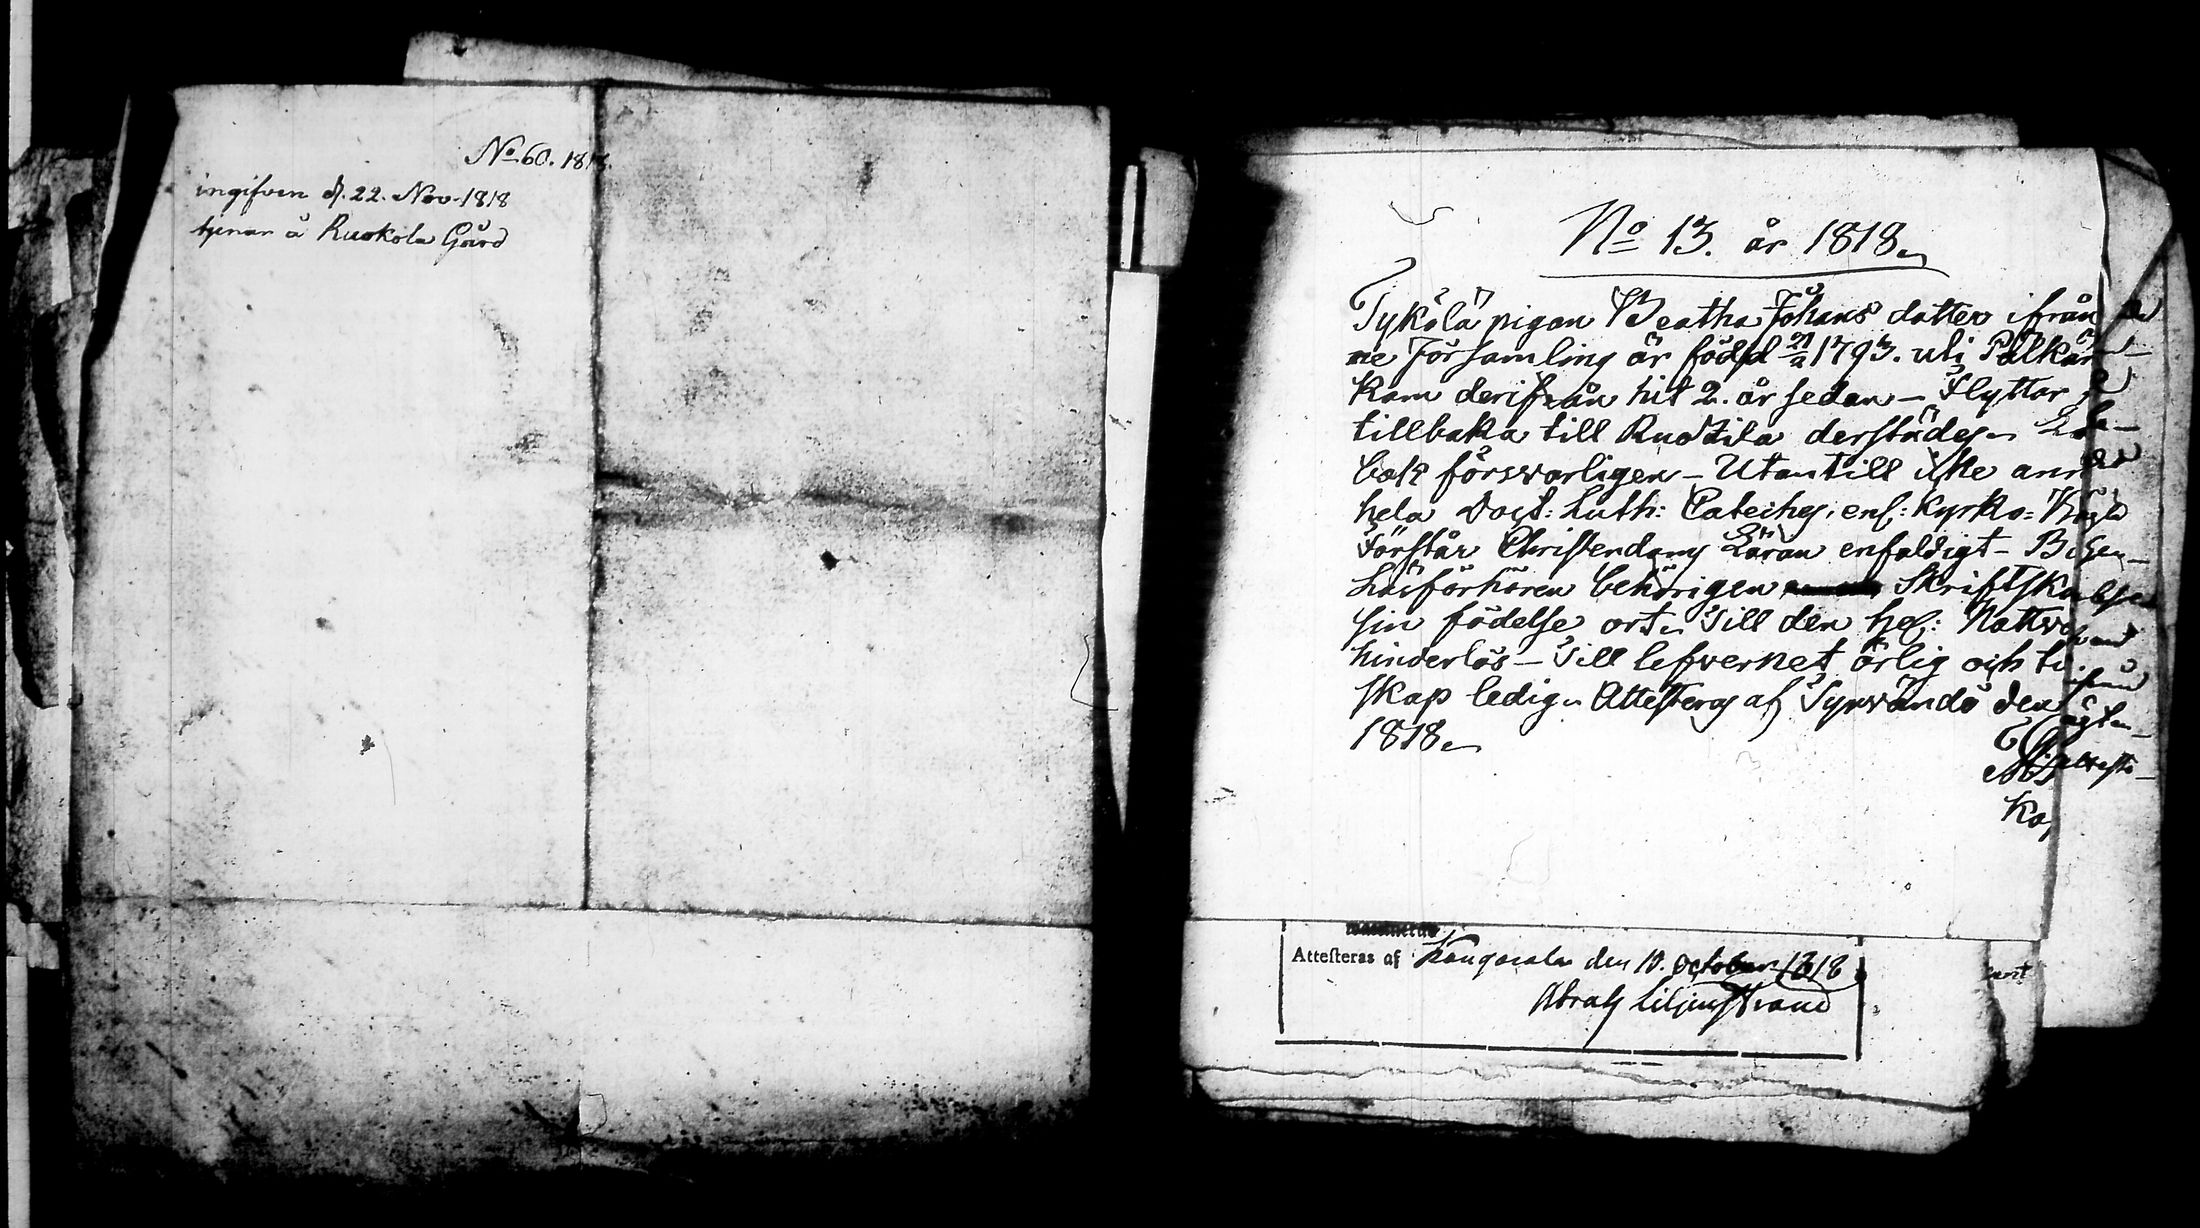 No 60. 1818.
ingifven d. 22. Nov. 1818
tjenar å Ruokola Gård
No 13. år 1818.
Tykölä pigan Beatha Johans dotter ifrån
ne Församling är född 21/2 1793. uti Pälkäne
kom derifrån hit 2. år sedan – Flyttar
tillbaka till Ruotila derstädes
bok försvarligen – Utantill icke annat
hela Doct: Luth: Cateches: enl: Kyrko=
Förstår Christendoms Läran enfaldigt –
Läsförhören behörigen Skriftskolan
sin födelse ort. Till den hel: Nattvard
hinderlös – Till lefvernet ärlig och
skap ledig. Attesteras af Syrvändö den
1818.
Attesteras af Kangasala den 10. October 1818
Abrah Liljenstrand